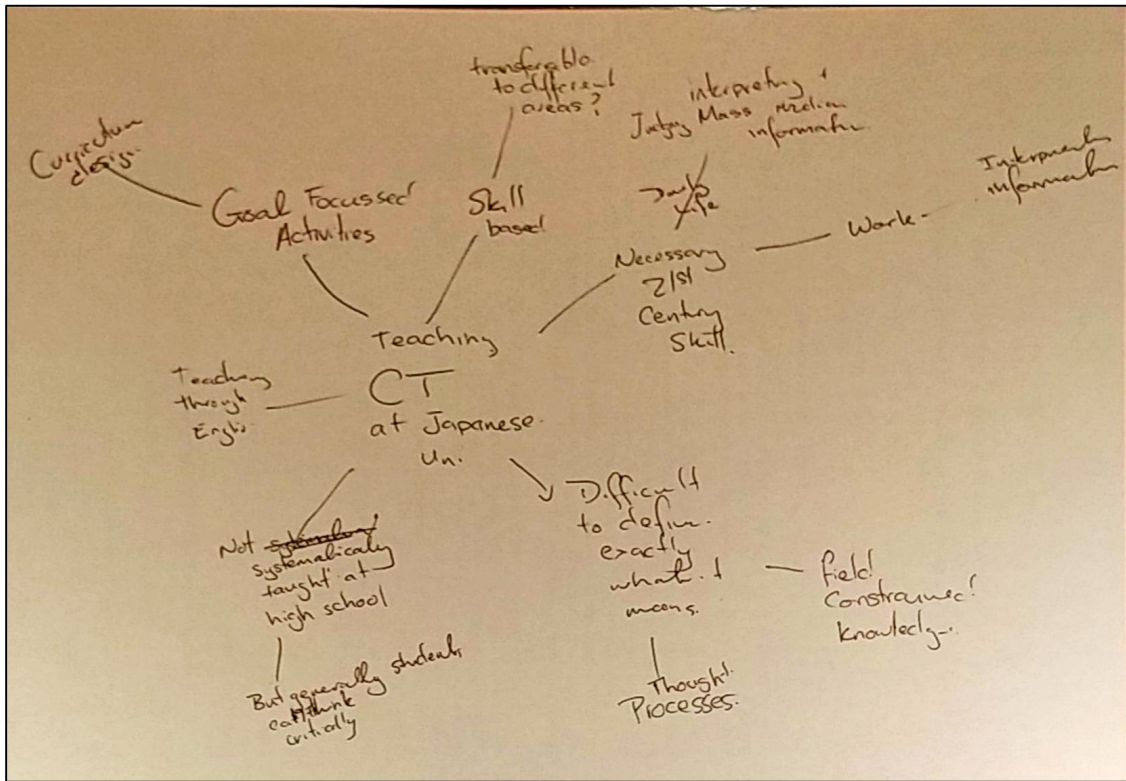 Curriculum
design
Goal Focussed
Activities
transferable
to different
areas?
Skill
based
interpreting +
Judging Mass media
information
Daily
Life
Necessary
21st
Century
Skill.
Work
information
Teaching
CT
at Japanese
Un.
Teaching
through
Not
systematically
taught at
high school
But generally students
think
critically
Difficult
to define
exactly
what it
means.
Thought
Processes.
field
Constrained